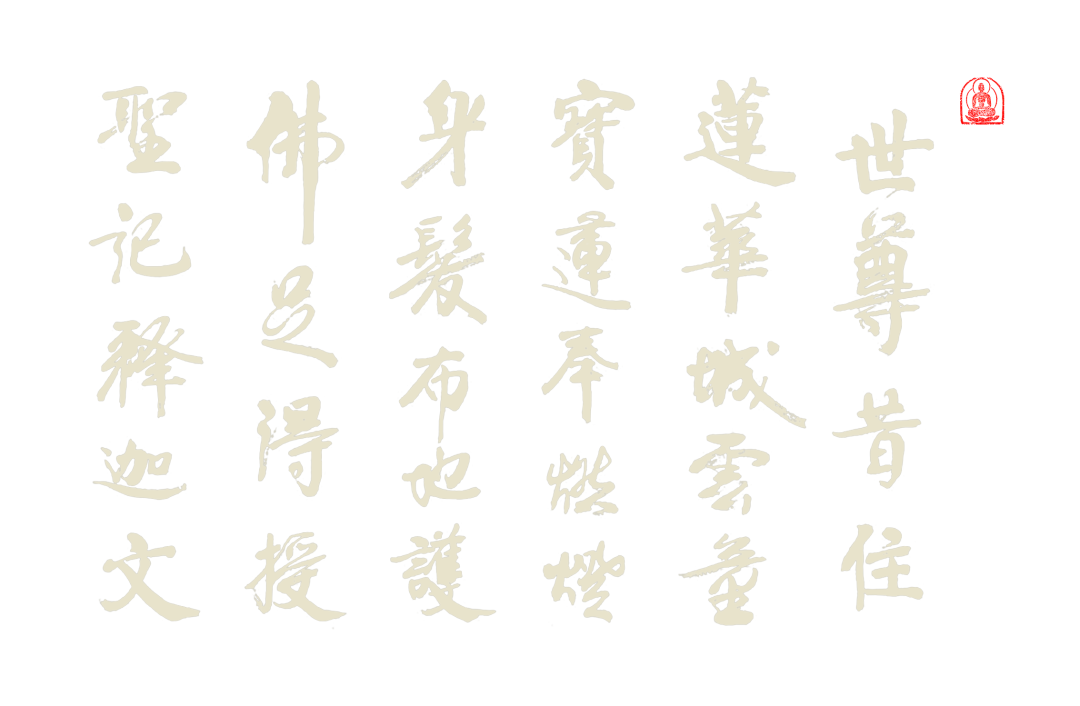 世尊昔住
蓮華城雲童
寶蓮奉燃燈
身髮布地護
佛足得授
聖記释迦文